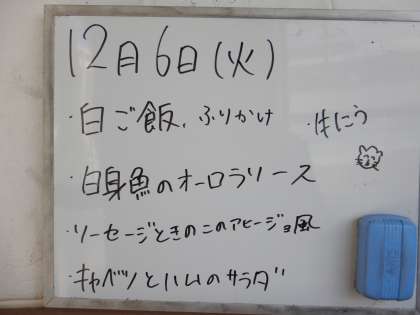 12月6日(火)
・白ご飯、ふりかけ ・牛にう
・白身魚のオーロラソース
・ソーセージときのこのアヒージョ風
・キャベツとハムのサラダ